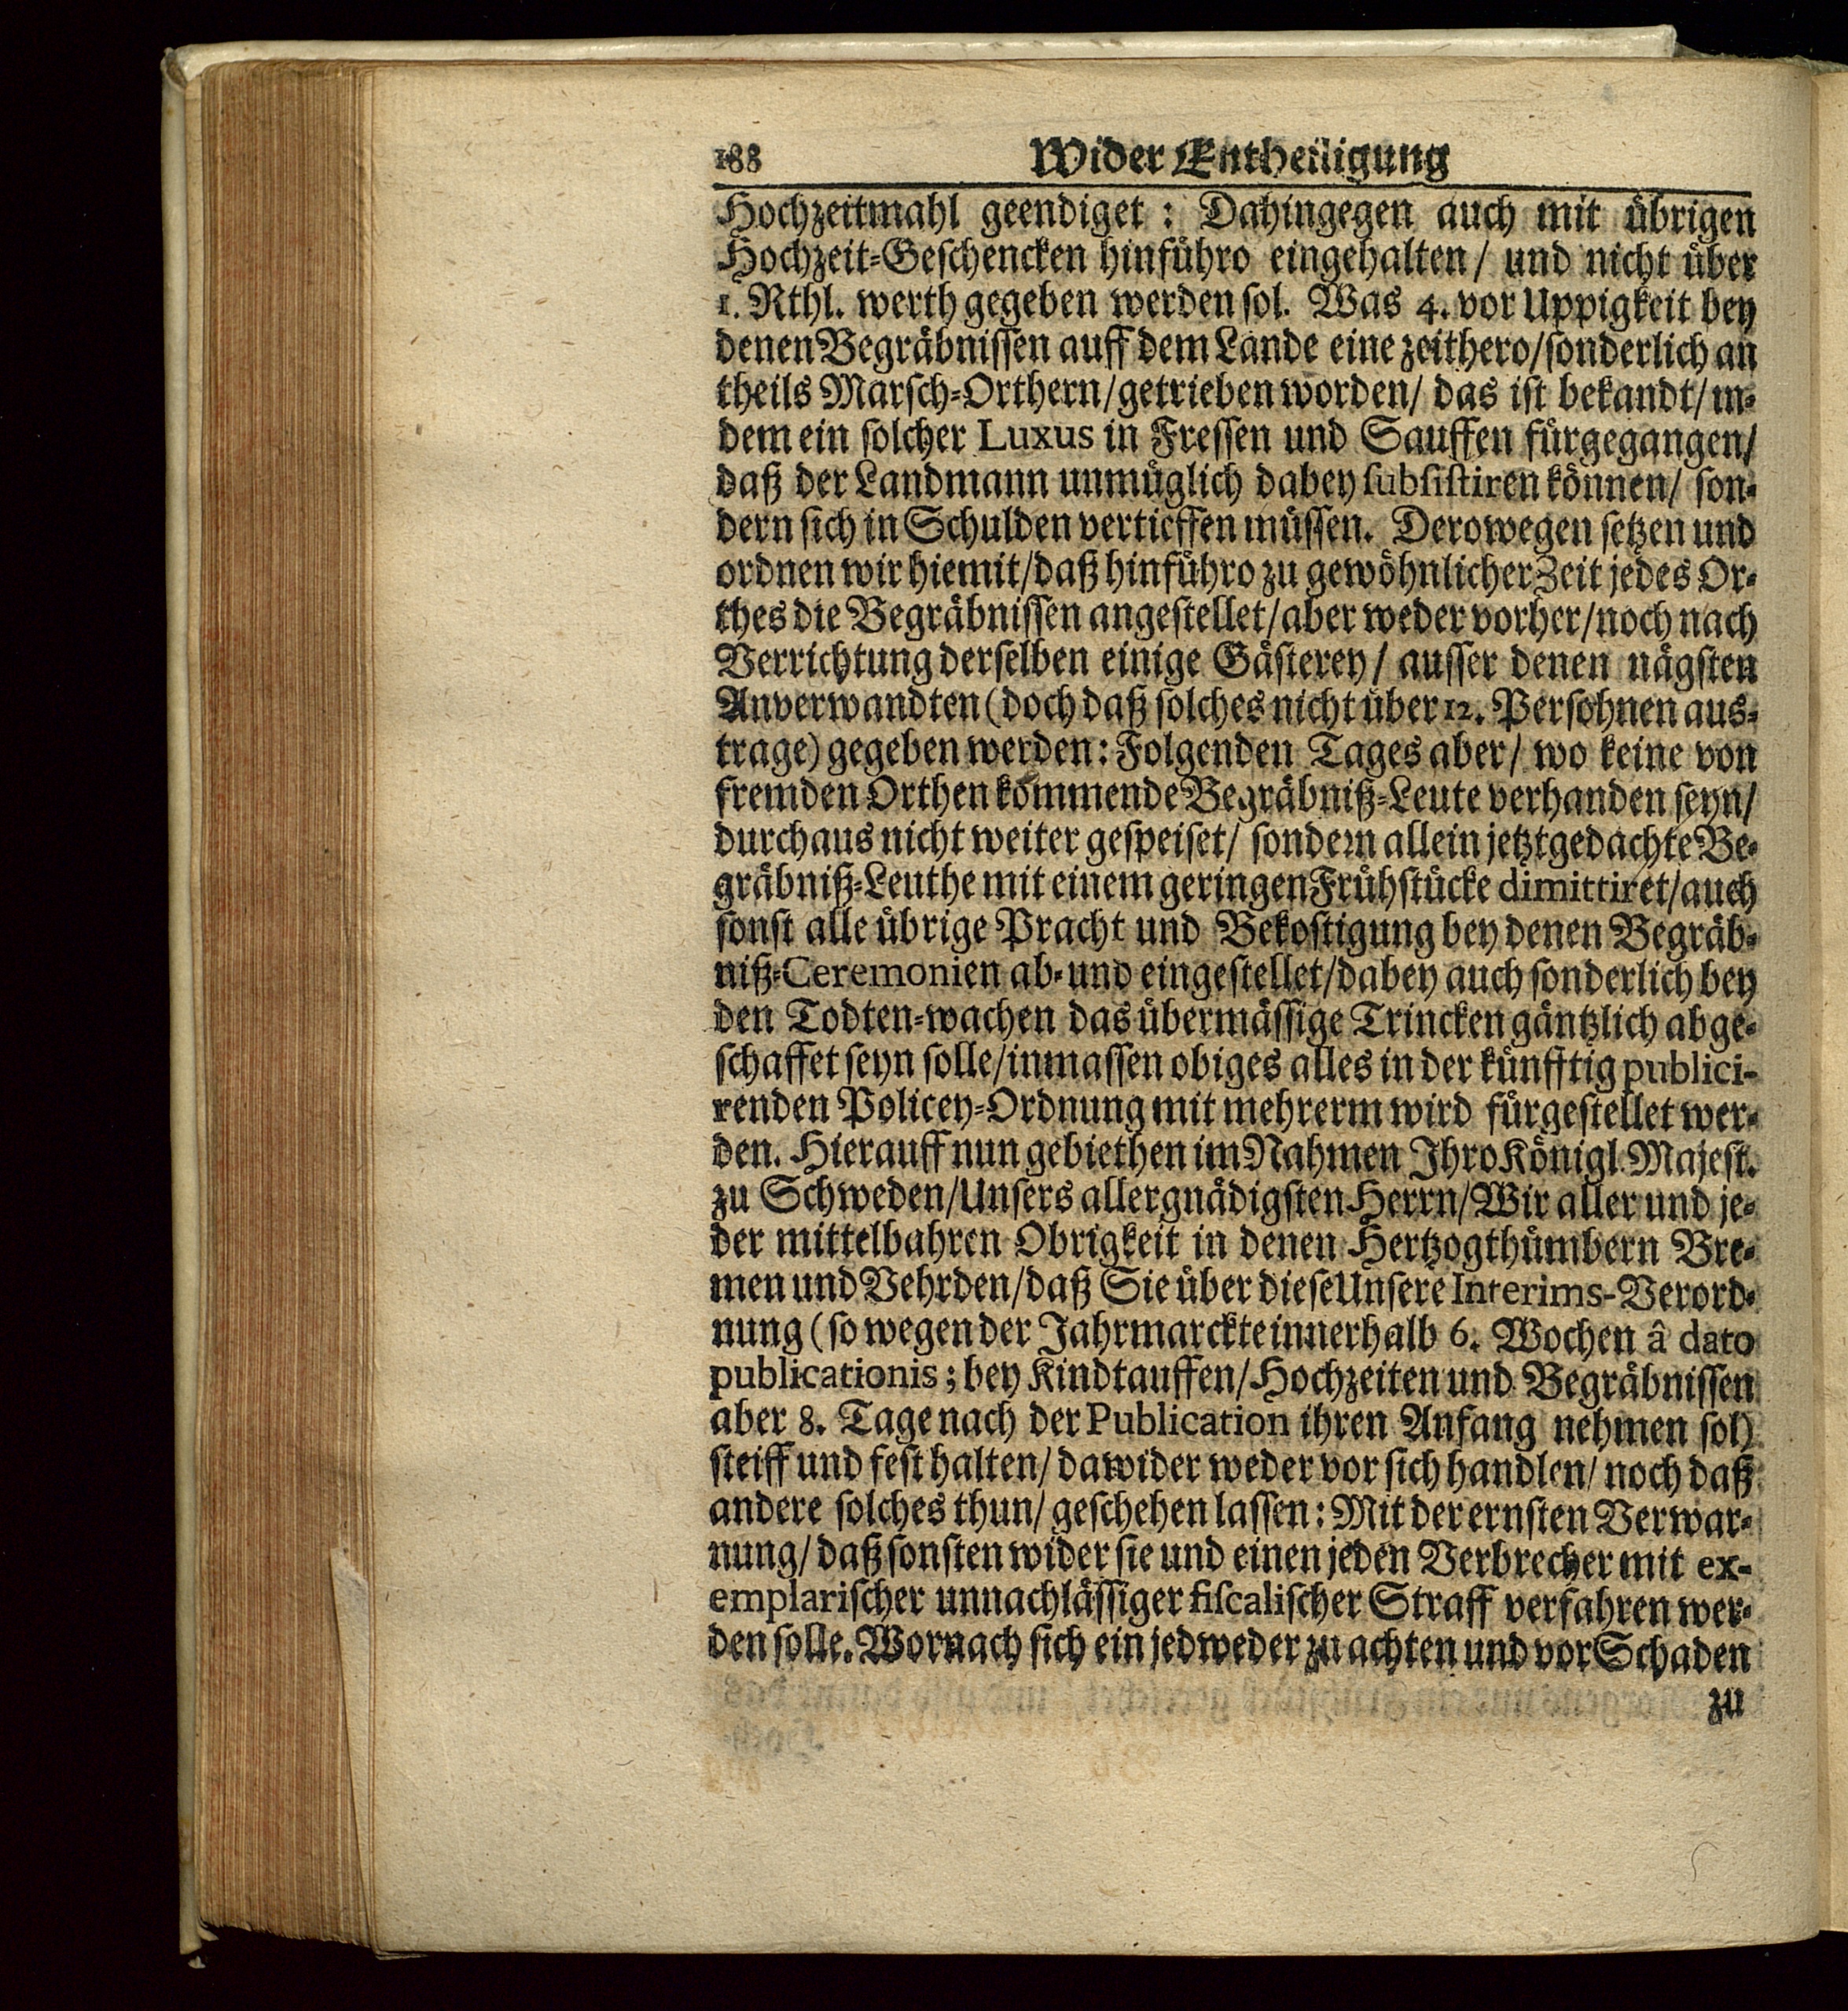 188 Wider Entheiligung
Hochzeitmahl geendiget: Dahingegen auch mit übrigen
Hochzeit-Geschencken hinführo eingehalten/ und nicht über
1. Rthl. werth gegeben werden sol. Was 4. vor Uppigkeit bey
denen Begräbnissen auff dem Lande eine zeithero/sonderlich an
theils Marsch-Orthern/getrieben worden/ das ist bekandt/ in-
dem ein solcher Luxus in Fressen und Sauffen fürgegangen/
daß der Landmann unmüglich dabey subsistiren können/ son-
dern sich in Schulden vertieffen müssen. Derowegen setzen und
ordnen wir hiemit/daß hinführo zu gewöhnlicher Zeit jedes Or-
thes die Begräbnissen angestellet/aber weder vorher/noch nach
Verrichtung derselben einige Gästerey/ ausser denen nägsten
Anverwandten (doch daß solches nicht über 12. Persohnen aus-
trage) gegeben werden: Folgenden Tages aber/ wo keine von
fremden Orthen kommende Begräbniß-Leute verhanden seyn/
durchaus nicht weiter gespeiset/ sondern allein jetztgedachte Be-
gräbniß-Leuthe mit einem geringen Frühstücke dimittiret/auch
sonst alle übrige Pracht und Bekostigung bey denen Begräb-
niß-Ceremonien ab- und eingestellet/dabey auch sonderlich bey
den Todten-wachen das übermässige Trincken gäntzlich abge-
schaffet seyn solle/inmassen obiges alles in der künfftig publici-
renden Policey-Ordnung mit mehrerm wird fürgestellet wer-
den. Hierauff nun gebiethen im Nahmen Ihro Königl. Majest.
zu Schweden/Unsers allergnädigsten Herrn/Wir aller und je-
der mittelbahren Obrigkeit in denen Hertzogthümbern Bre-
men und Vehrden/daß Sie über diese Unsere Interims-Verord-
nung (so wegen der Jahrmarckte innerhalb 6. Wochen â dato
publicationis; bey Kindtauffen/Hochzeiten und Begräbnissen
aber 8. Tage nach der Publication ihren Anfang nehmen sol)
steiff und fest halten/ dawider weder vor sich handlen/ noch daß
andere solches thun/ geschehen lassen: Mit der ernsten Verwar-
nung/ daß sonsten wider sie und einen jeden Verbrecher mit ex-
emplarischer unnachlässiger fiscalischer Straff verfahren wer-
den solle. Wornach sich ein jedweder zu achten und vor Schaden
zu